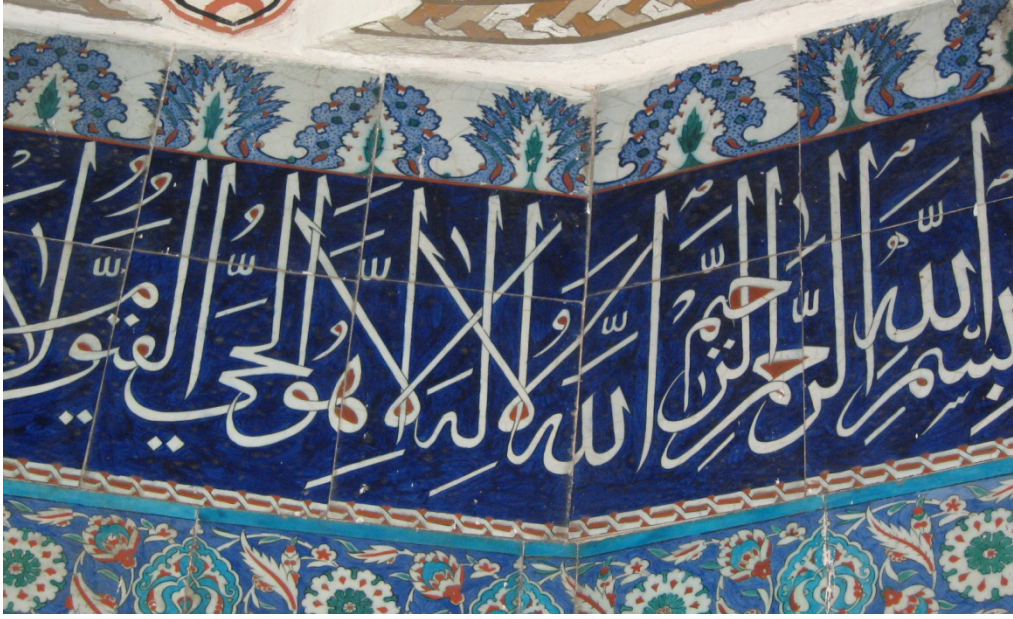 بِسْمِ اللّٰهِ الرَّحْمٰنِ الرَّحِيمِ اللّٰهُ لَا إِلٰهَ إِلَّا هُوَ الْحَيُّ الْقَيُّومُ لَا